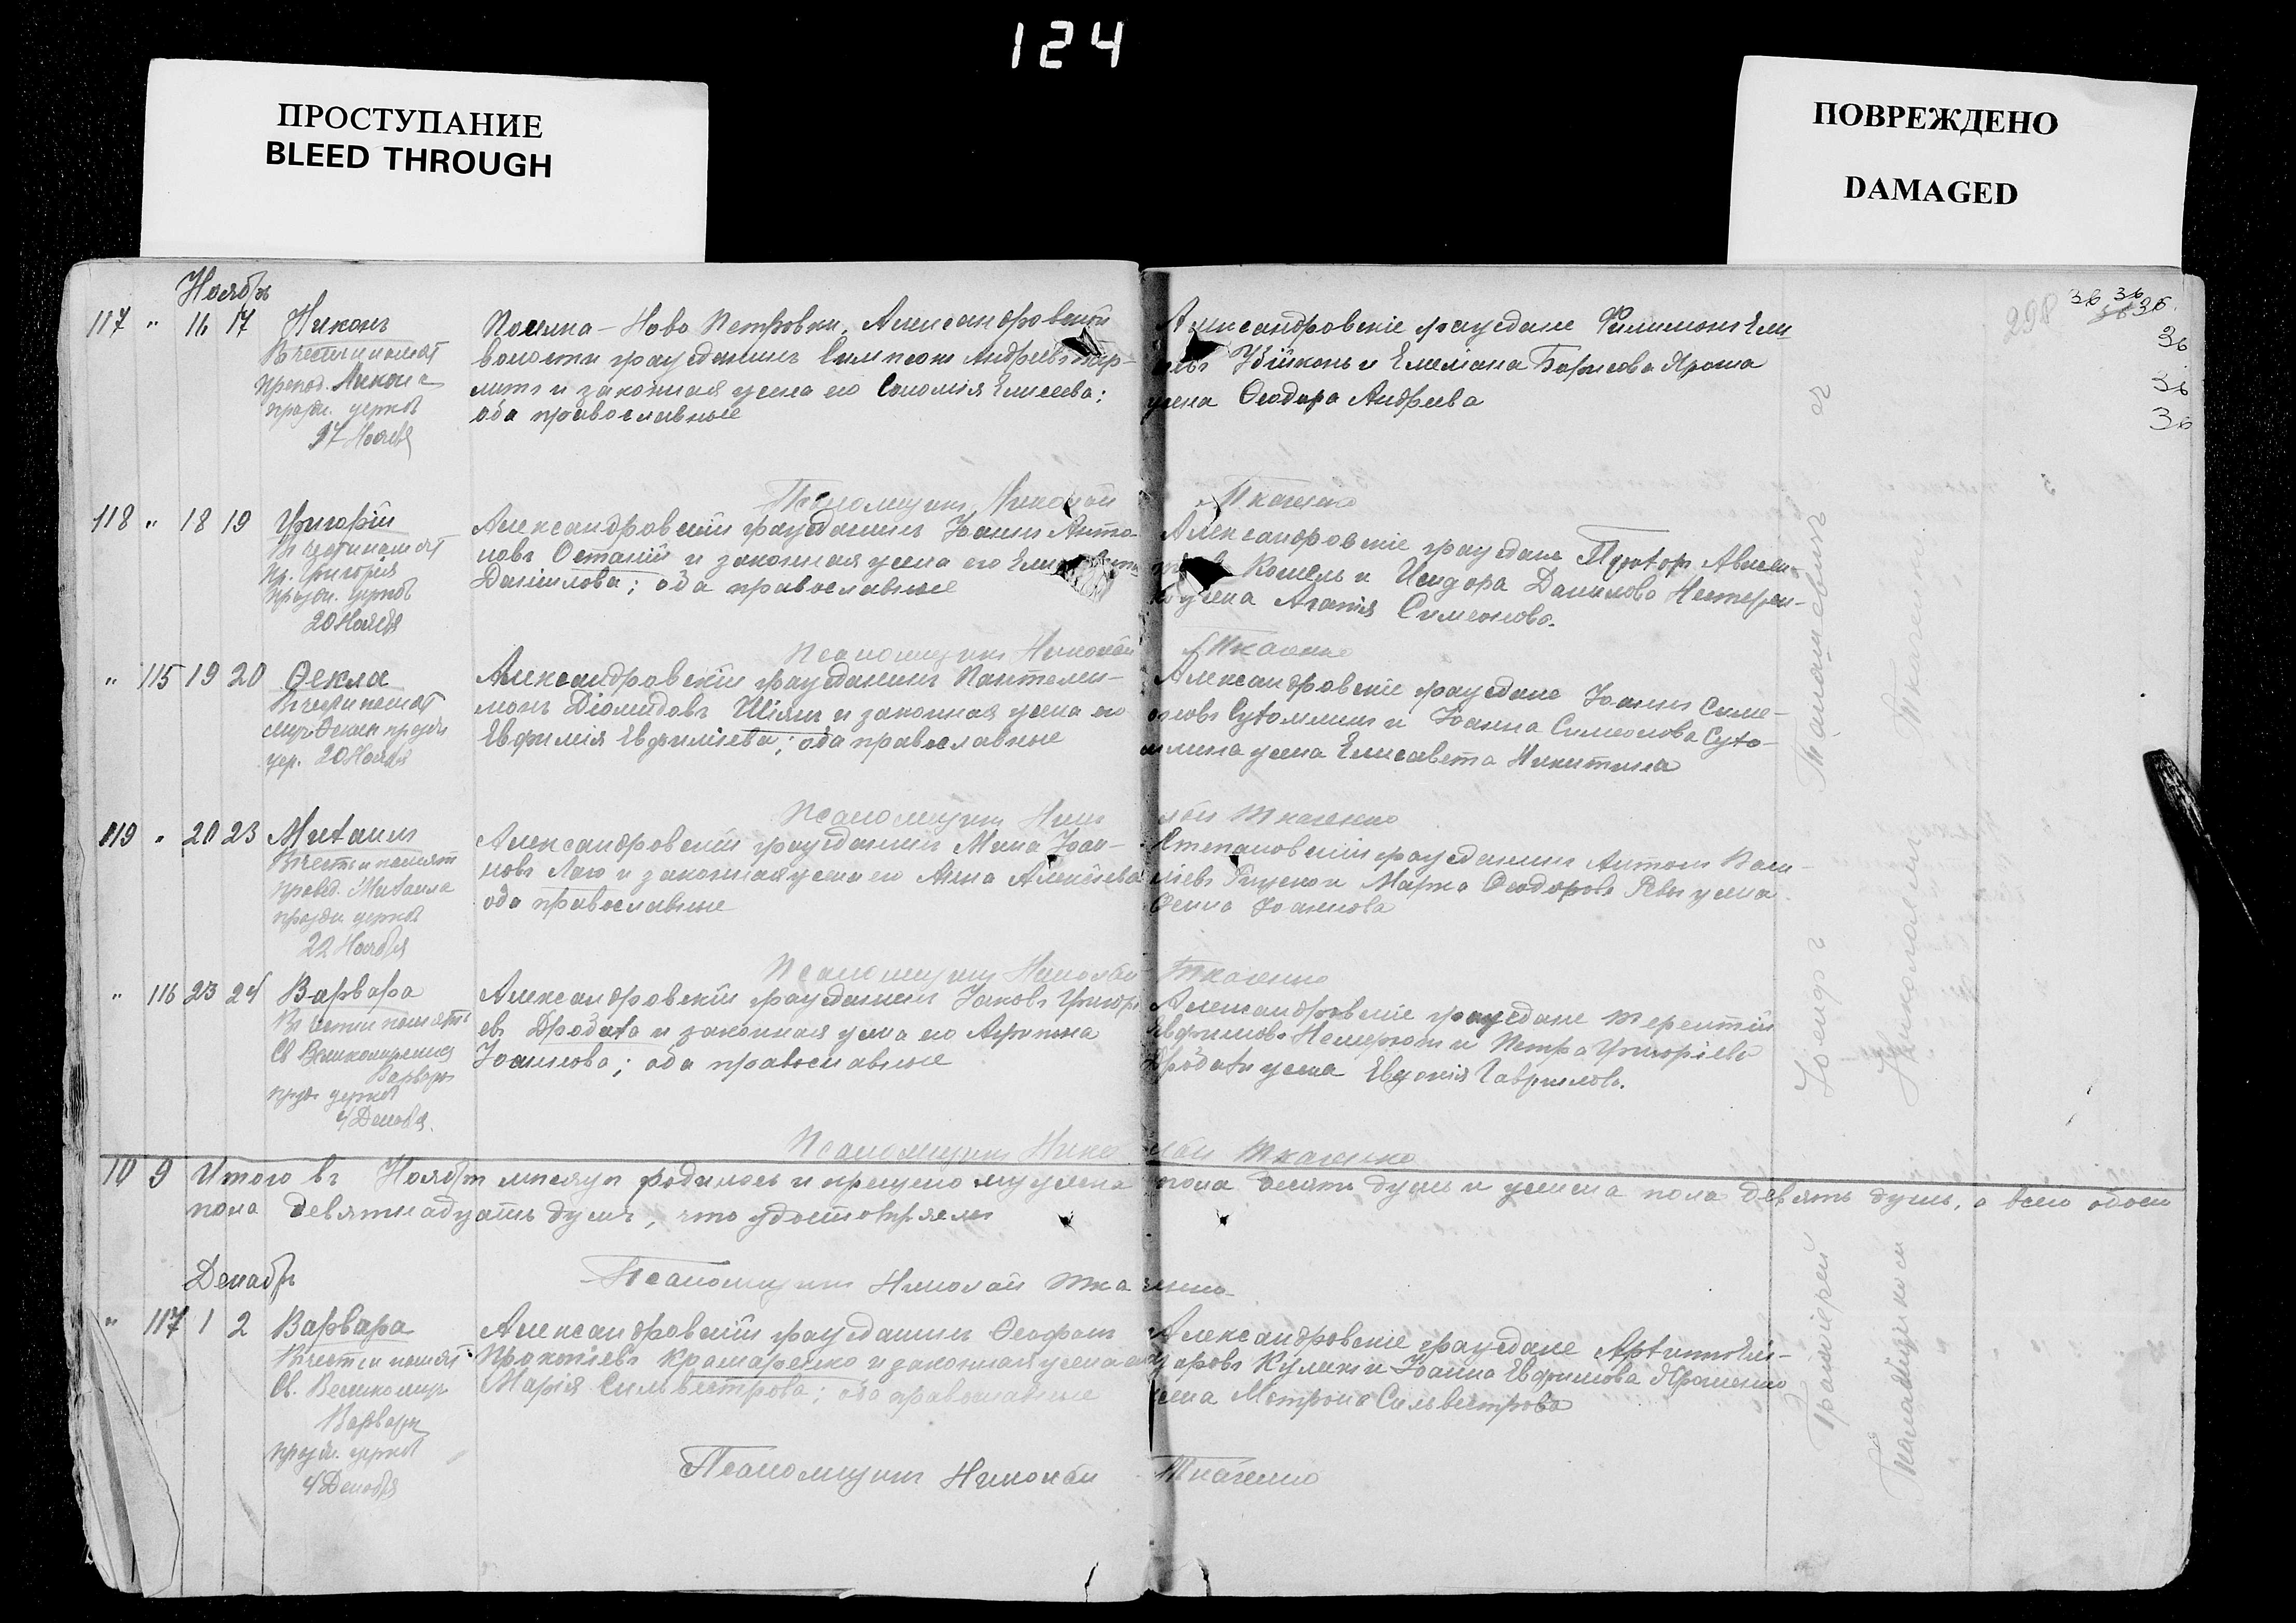 124
ПРОСТУПАНИЕ
BLEED THROUGH
ПОВРЕЖДЕНО
DAMAGED
298
36 36
36.
36
36
36
Ноябрь
117 " 16 17 Никонъ
В честь и памят
препод. Никона
празн. церков
17 Ноября
Поселка - Ново Петровки, Александровской
волости гражданинъ Симпсон Андреевъ
и законная жена его Соломія Елисеева;
оба православные
Александровскіе граждане Филимонъ Ели
Убійконь и Емеліана Борисова Яроша
жена Ѳеодора Андреева
Псаломщикъ Николай Ткаченко
118 " 18 19 Григорій
В честь и памят
Пр. Григорія
празн. церков
20 Ноября
Александровскій гражданинъ Іоаннъ Анто-
новъ Остапій и законная жена его
Даніилова; оба православные
Александровскіе граждане Прохоръ Авксен-
Кошель и Исидора Данилова Нестерен-
ко жена Агапія Симеонова.
Псаломщикъ Николай Ткаченко
" 115 19 20 Ѳекла
В честь и памят
муч. Ѳеклы праздн
цер. 20 Ноября
Александровскій гражданинъ Пантелеи-
монъ Діомидовъ Шіянъ и законная жена его
Евфимія Евфиміева; оба православные
Александровскіе граждане Іоаннъ Симе-
оновъ Сухомлинъ и Іоанна Симеонова Сухо-
млина жена Елисавета Никитина
Псаломщикъ Николай Ткаченко
119 " 20 23 Михаилъ
В честь и памят
препод. Михаила
празн церков
22 Ноября
Александровскій гражданинъ Мина Іоан-
новъ Лаго и законная жена его Анна Алексѣева
оба православные
Степановскій гражданинъ Антонъ Васи-
ліевъ Гнусен и Марка Ѳеодорова Рѣвы жена
Ѳенна Іоаннова
Псаломщикъ Николай Ткаченко
" 116 23 24 Варвара
В честь и память
Св Великомученицы
Варвары
празн церков
4 Декабря.
Александровскій гражданинъ Іаковъ Григорі
евъ Дробаха и законная жена его Агрипина
Іоаннова; оба православные
Александровскіе граждане Терентій
Евфимовъ Немерюги и Петра Григоріева
Дробахи жена Евдокія Гаврилова.
Псаломщикъ Николай Ткаченко
10 9 Итого въ Ноябрѣ мѣсяцѣ родилось и крещено мужеска пола десять душъ и женска пола девять душъ, а всего обоего
пола девятнадцать душъ, что удостовѣряемъ
Псаломщикъ Николай Ткаченко
Декабрь
" 117 1 2 Варвара
В честь и памят
Св. Великомуч
Варвары
празн. церков
4 Декабря
Александровскій гражданинъ Ѳеофанъ
Прокопіевъ Крамаренко и законная жена его
Марія Сильвестрова; оба православные
Александровскіе граждане
Кулик и Іоанна Евфимова Ярошенко
жена Матрона Сильвестрова
Псаломщикъ Николай Ткаченко
Іерей
Томашевичъ
Псаломщикомъ
Николаемъ
Ткаченко